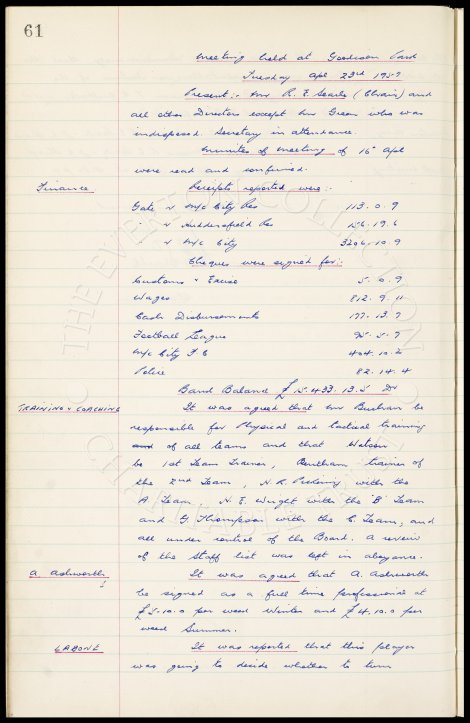 61
Meeting held at Goodison Park
Tuesday Apl 23rd 1957
Present:- Mr R. E. Searle (Chair) and
all other Directors except Mr Green who was
indisposed. Secretary in attendance.
Minutes of meeting of 16th Apl
were read and confirmed.
Finance Receipts reported were:-
Gate v M/c City Res 113. 0. 9
" v Huddersfield Res 156. 19. 6
" v M/c City 3206. 10. 9
Cheques were signed for:-
Customs & Excise 5. 0. 9
Wages 812. 9. 11
Cash Disbursements 177. 13. 7
Football League 95. 5. 7
M/c City F C 404. 10. 2
Police 82. 14. 4
Bank Balance £15.433. 13. 5 Dr
TRAINING & COACHING It was agreed that Mr Buchan be
responsible for Physical and tactical training
and of all teams and that Watson
be 1st Team Trainer, Bentham, trainer of
the 2nd Team, H. R. Pickering with the
A Team N. E. Wright with the B Team
and G. Thompson with the C. Team, and
all under control of the Board. A review
of the Staff list was left in abeyance.
A Ashworth It was agreed that A. Ashworth
be signed as a full time professional at
£5-10.0 per week Winter and £4.10.0 per
week Summer.
LABONE It was reported that this player
was going to decide whether to turn
THE EVERTON COLLECTION